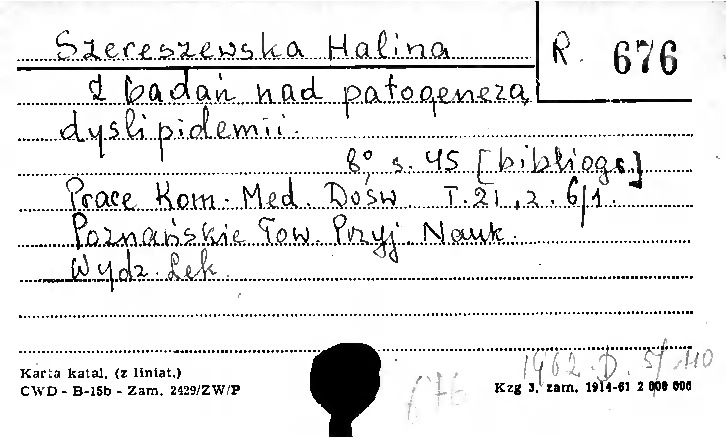 Szereszewska Halina
R. 676
Z badań nad patogenezą
dyslipidemii.
8° s. 45 [bibliogr.]
Prace Kom. Med. Dośw. T. 21, z. 6/1.
Poznańskie Tow. Przyj. Nauk.
Wydz. Lek.
Karta katal. (z liniat.)
CWD - B-15b - Zam. 2429/ZW/P
676
1962. D. 5/110
Kzg 3, zam. 1914-61 2 000 000